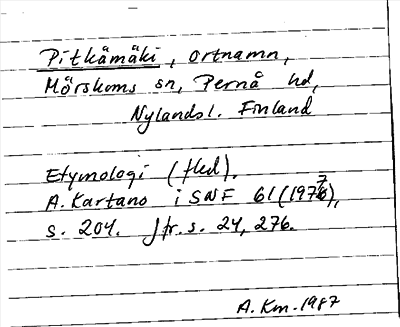 Pitkämäki, ortnamn,
Mörskoms sn, Pernå hd,
Nylandsl. Finland
Etymologi (fled).
A. Kartano i SNF 61 (1977),
s. 204. Jfr. s. 24, 276.
A. Km. 1987